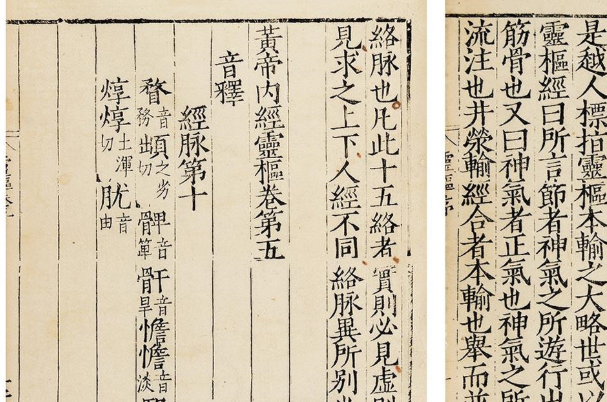 是越人標指靈樞本輸之大略世或以
靈樞經曰所言節者神氣之所遊行出
筋骨也又曰神氣者正氣也神氣之所
流注也井滎輸經合者本輸也舉而
絡脉也凡此十五絡者實則必見虛則
見求之上下人經不同絡脉異所別
黃帝內經靈樞卷第五
音釋
經脉第十
瞀音務䪼之劣切髀音箄骭音旱憺憺音淡
焞焞土渾切肬音由